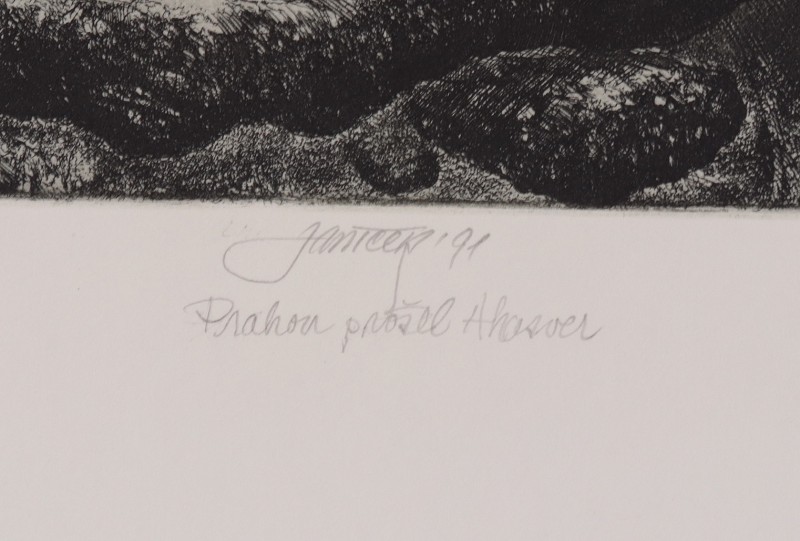 Janíček '91
Prahou prošel Ahasver